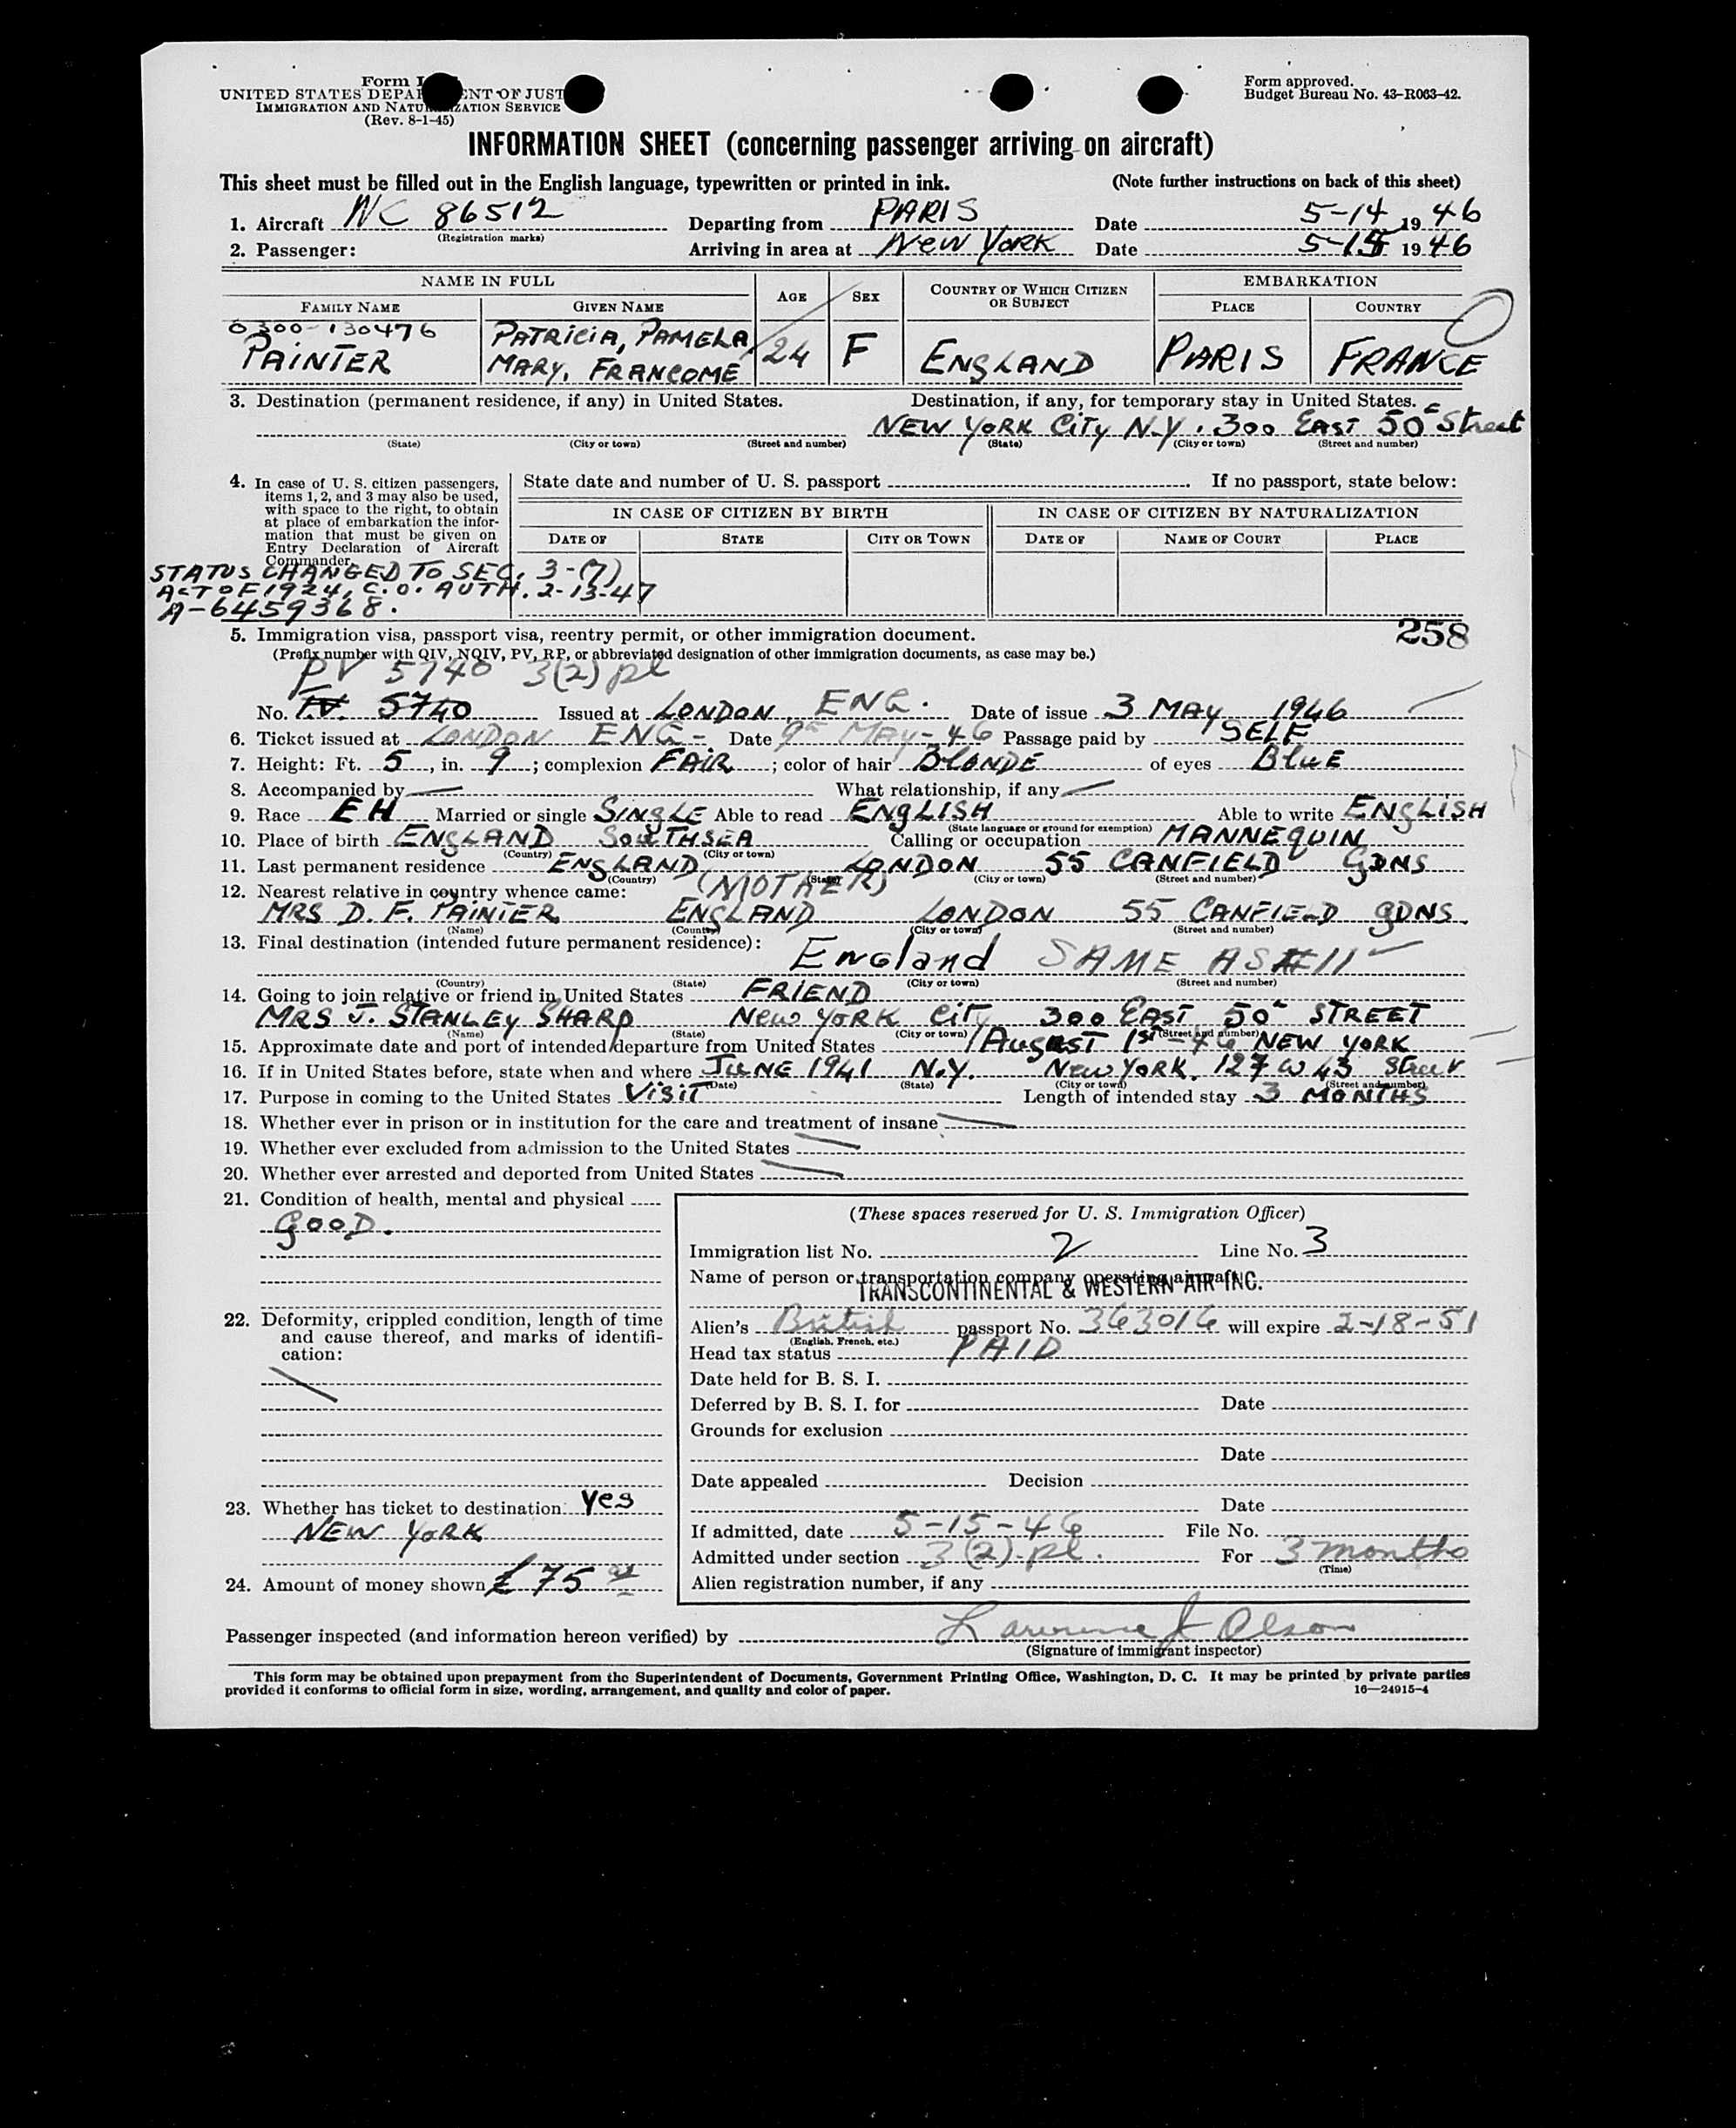 Form I
UNITED STATES DEPA ENT OF JUST
IMMIGRATION AND NATU ZATION SERVICE
(Rev. 8-1-45)
Form approved.
Budget Bureau No. 43-R063-42.
INFORMATION SHEET (concerning passenger arriving on aircraft)
This sheet must be filled out in the English language, typewritten or printed in ink. (Note further instructions on back of this sheet)
1. Aircraft NC 86512 Departing from PARIS Date 5-14 1946
(Registration marks)
2. Passenger: Arriving in area at NEW YORK Date 5-15 1946
NAME IN FULL AGE SEX COUNTRY OF WHICH CITIZEN OR SUBJECT EMBARKATION
FAMILY NAME GIVEN NAME PLACE COUNTRY
0300-130476
PAINTER PATRICIA, PAMELA MARY, FRANCOME 24 F ENGLAND PARIS FRANCE
3. Destination (permanent residence, if any) in United States. Destination, if any, for temporary stay in United States.
NEW YORK CITY N.Y. 300 EAST 50 Street
(State) (City or town) (Street and number) (State) (City or town) (Street and number)
4. In case of U. S. citizen passengers, items 1, 2, and 3 may also be used, with space to the right, to obtain at place of embarkation the information that must be given on Entry Declaration of Aircraft Commander.
State date and number of U. S. passport . If no passport, state below:
IN CASE OF CITIZEN BY BIRTH IN CASE OF CITIZEN BY NATURALIZATION
DATE OF STATE CITY OR TOWN DATE OF NAME OF COURT PLACE
STATUS CHANGED TO SEC. 3-(7)
ACT OF 1924, C.O. AUTH. 2-13-47
A-6459368.
258
5. Immigration visa, passport visa, reentry permit, or other immigration document.
(Prefix number with QIV, NQIV, PV, RP, or abbreviated designation of other immigration documents, as case may be.)
PV 5740 3(2) pl
No. T.V. 5740 Issued at LONDON, ENG. Date of issue 3 MAY 1946
6. Ticket issued at LONDON ENG- Date 9 MAY-46 Passage paid by SELF
7. Height: Ft. 5, in. 9; complexion FAIR; color of hair BLONDE of eyes BLUE
8. Accompanied by — What relationship, if any —
9. Race EH Married or single SINGLE Able to read ENGLISH Able to write ENGLISH
(State language or ground for exemption)
10. Place of birth ENGLAND SOUTHSEA Calling or occupation MANNEQUIN
(Country) (City or town)
11. Last permanent residence ENGLAND LONDON 55 CANFIELD GDNS
(Country) (State) (City or town) (Street and number)
12. Nearest relative in country whence came: (MOTHER)
MRS D. F. PAINTER ENGLAND LONDON 55 CANFIELD GDNS.
(Name) (Country) (City or town) (Street and number)
13. Final destination (intended future permanent residence): England SAME AS #11
(Country) (State) (City or town) (Street and number)
14. Going to join relative or friend in United States FRIEND
MRS J. STANLEY SHARP NEW YORK CITY 300 EAST 50 STREET
(Name) (State) (City or town) (Street and number)
15. Approximate date and port of intended departure from United States AUGUST 1st-46 NEW YORK
16. If in United States before, state when and where JUNE 1941 N.Y. NEW YORK. 127 W 43 Street
(Date) (State) (City or town) (Street and number)
17. Purpose in coming to the United States VISIT Length of intended stay 3 MONTHS
18. Whether ever in prison or in institution for the care and treatment of insane
19. Whether ever excluded from admission to the United States
20. Whether ever arrested and deported from United States
21. Condition of health, mental and physical
GOOD.
22. Deformity, crippled condition, length of time and cause thereof, and marks of identification:
23. Whether has ticket to destination: Yes
NEW YORK
24. Amount of money shown £ 75
(These spaces reserved for U. S. Immigration Officer)
Immigration list No. 2 Line No. 3
Name of person or transportation company operating aircraft
TRANSCONTINENTAL & WESTERN AIR INC.
Alien's British passport No. 363016 will expire 2-18-51
(English, French, etc.)
Head tax status PAID
Date held for B. S. I.
Deferred by B. S. I. for Date
Grounds for exclusion
Date
Date appealed Decision
Date
If admitted, date 5-15-46 File No.
Admitted under section 3(2) pl. For 3 months
(Time)
Alien registration number, if any
Passenger inspected (and information hereon verified) by Lawrence J Olson
(Signature of immigrant inspector)
This form may be obtained upon prepayment from the Superintendent of Documents, Government Printing Office, Washington, D. C. It may be printed by private parties
provided it conforms to official form in size, wording, arrangement, and quality and color of paper. 16—24915-4